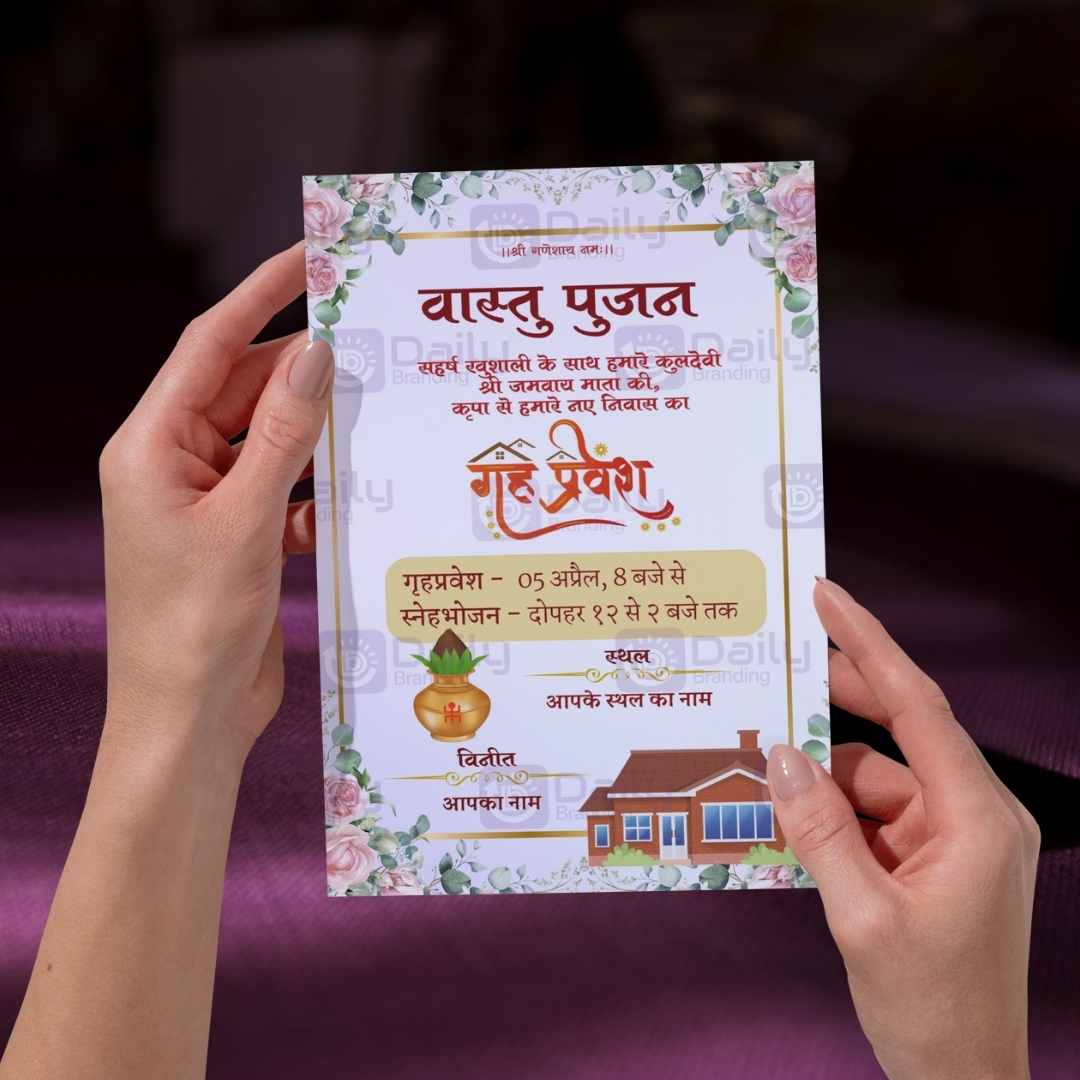 Daily
Branding
||श्री गणेशाय नमः||
वास्तु पुजन
Daily
Branding
Daily
Branding
सहर्ष खुशाली के साथ हमारे कुलदेवी
श्री जमवाय माता की,
कृपा से हमारे नए निवास का
गृह प्रवेश
गृहप्रवेश - 05 अप्रैल, 8 बजे से
स्नेहभोजन - दोपहर १२ से २ बजे तक
स्थल
Daily
Branding
आपके स्थल का नाम
विनीत
आपका नाम